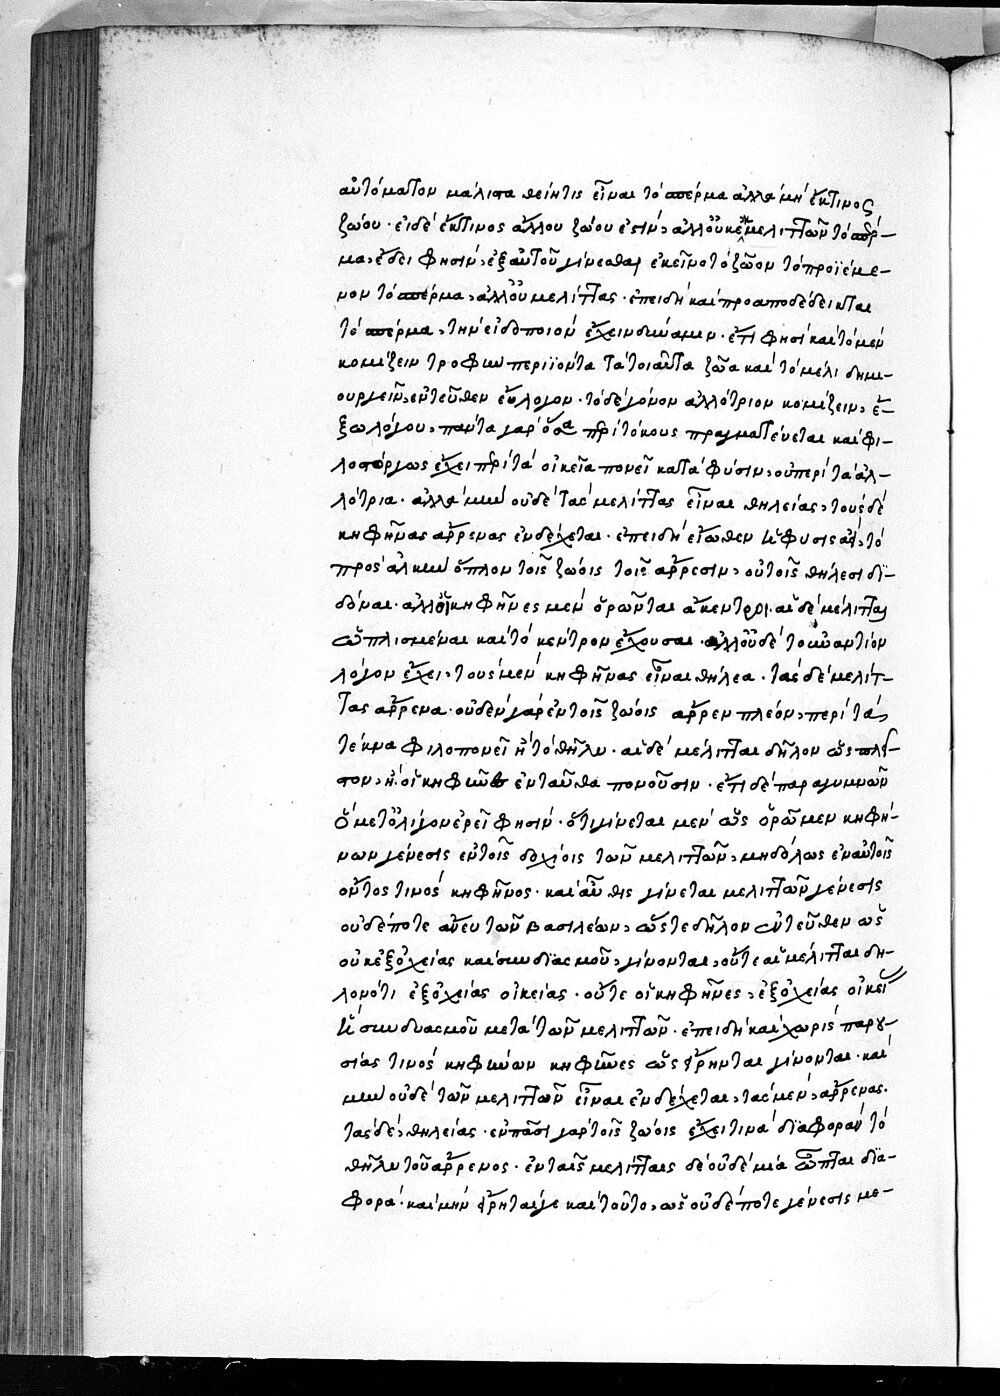 αὐτόματον μάλιστα θείη τις εἶναι τὸ σπέρμα ἀλλὰ μὴ ἔκ τινος
ζώου· εἰ δὲ ἔκ τινος ἄλλου ζώου ἐστίν, ἀλλ' οὐκ ἐκ μελιττῶν τὸ σπέρ-
μα, ἔδει φησὶν, ἐξ αὐτοῦ γίνεσθαι ἐκεῖνο τὸ ζῶον τὸ προϊέμε-
νον τὸ σπέρμα, ἀλλ' οὐ μελίττας· ἐπειδὴ καὶ προαποδέδεικται
τὸ σπέρμα, τὴν εἰδοποιὸν ἔχειν δύναμιν· ἔτι φησὶ καὶ τὸ μὲν
κομίζειν τροφὴν περιϊόντα τὰ τοιαῦτα ζῶα καὶ τὸ μέλι δημι-
ουργεῖν, ἐντεῦθεν εὔλογον· τὸ δὲ γόνον ἀλλότριον κομίζειν, ἔ-
ξω λόγου, πάντα γὰρ ὅσα περὶ τόκους πραγματεύεται καὶ φι-
λοστόργως ἔχει περὶ τὰ οἰκεῖα πονεῖ κατὰ φύσιν, οὐ περὶ τὰ ἀλ-
λότρια· ἀλλὰ μὴν οὐδὲ τὰς μελίττας εἶναι θηλείας, τοὺς δὲ
κηφῆνας ἄρρενας ἐνδέχεται· ἐπειδὴ εἴωθεν ἡ φύσις ἀεὶ, τὸ
πρὸς ἀλκὴν ὅπλον τοῖς ζώοις τοῖς ἄρρεσιν, οὐ τοῖς θήλεσι δι-
δόναι· ἀλλ' οἱ κηφῆνες μὲν ὁρῶνται ἄκεντροι· αἱ δὲ μέλιτται
ὡπλισμέναι καὶ τὸ κέντρον ἔχουσαι· ἀλλ' οὐδὲ τοὐναντίον
λόγον ἔχει, τοὺς μὲν κηφῆνας εἶναι θήλεα· τὰς δὲ μελίτ-
τας ἄρρενα· οὐδὲν γὰρ ἐν τοῖς ζώοις ἄρρεν πλέον, περὶ τὰ,
τέκνα φιλοπονεῖ ἢ τὸ θῆλυ· αἱ δὲ μέλιτται δῆλον ὡς πλεῖ-
στον, ἢ οἱ κηφῆνες ἐνταῦθα πονοῦσιν· ἔτι δὲ παραγυμνῶν
ὃ μετ' ὀλίγον ἐρεῖ φησίν· ὅτι γίνεται μὲν ὡς ὁρῶμεν κηφή-
νων γένεσις ἐν τοῖς δοχείοις τῶν μελιττῶν, μηδόλως ἐν αὐτοῖς
ὄντος τινὸς κηφῆνος· καὶ αὖθις γίνεται μελιττῶν γένεσις
οὐδέποτε ἄνευ τῶν βασιλέων, ὥστε δῆλον ἐντεῦθεν ὡς
οὐκ ἐξ ὀχείας καὶ συνδυασμοῦ, γίνονται, οὔτε αἱ μέλιτται δη-
λονότι ἐξ ὀχείας οἰκείας· οὔτε οἱ κηφῆνες, ἐξ ὀχείας οἰκεί
ἢ συνδυασμοῦ μετὰ τῶν μελιττῶν· ἐπειδὴ καὶ χωρὶς παρου-
σίας τινὸς κηφήνων κηφῆνες ὡς εἴρηνται γίνονται· καὶ
μὴν οὐδὲ τῶν μελιττῶν εἶναι ἐνδέχεται, τὰς μὲν, ἄρρενας.
τὰς δὲ, θηλείας· ἐν πᾶσι γὰρ τοῖς ζώοις ἔχει τινὰ διαφορὰν τὸ
θῆλυ τοῦ ἄρρενος· ἐν ταῖς μελίτταις δὲ οὐδὲ μία ὦπται δια-
φορά· καὶ μὴν εἴρηταί γε καὶ τοῦτο, ὡς οὐδέποτε γένεσις με-